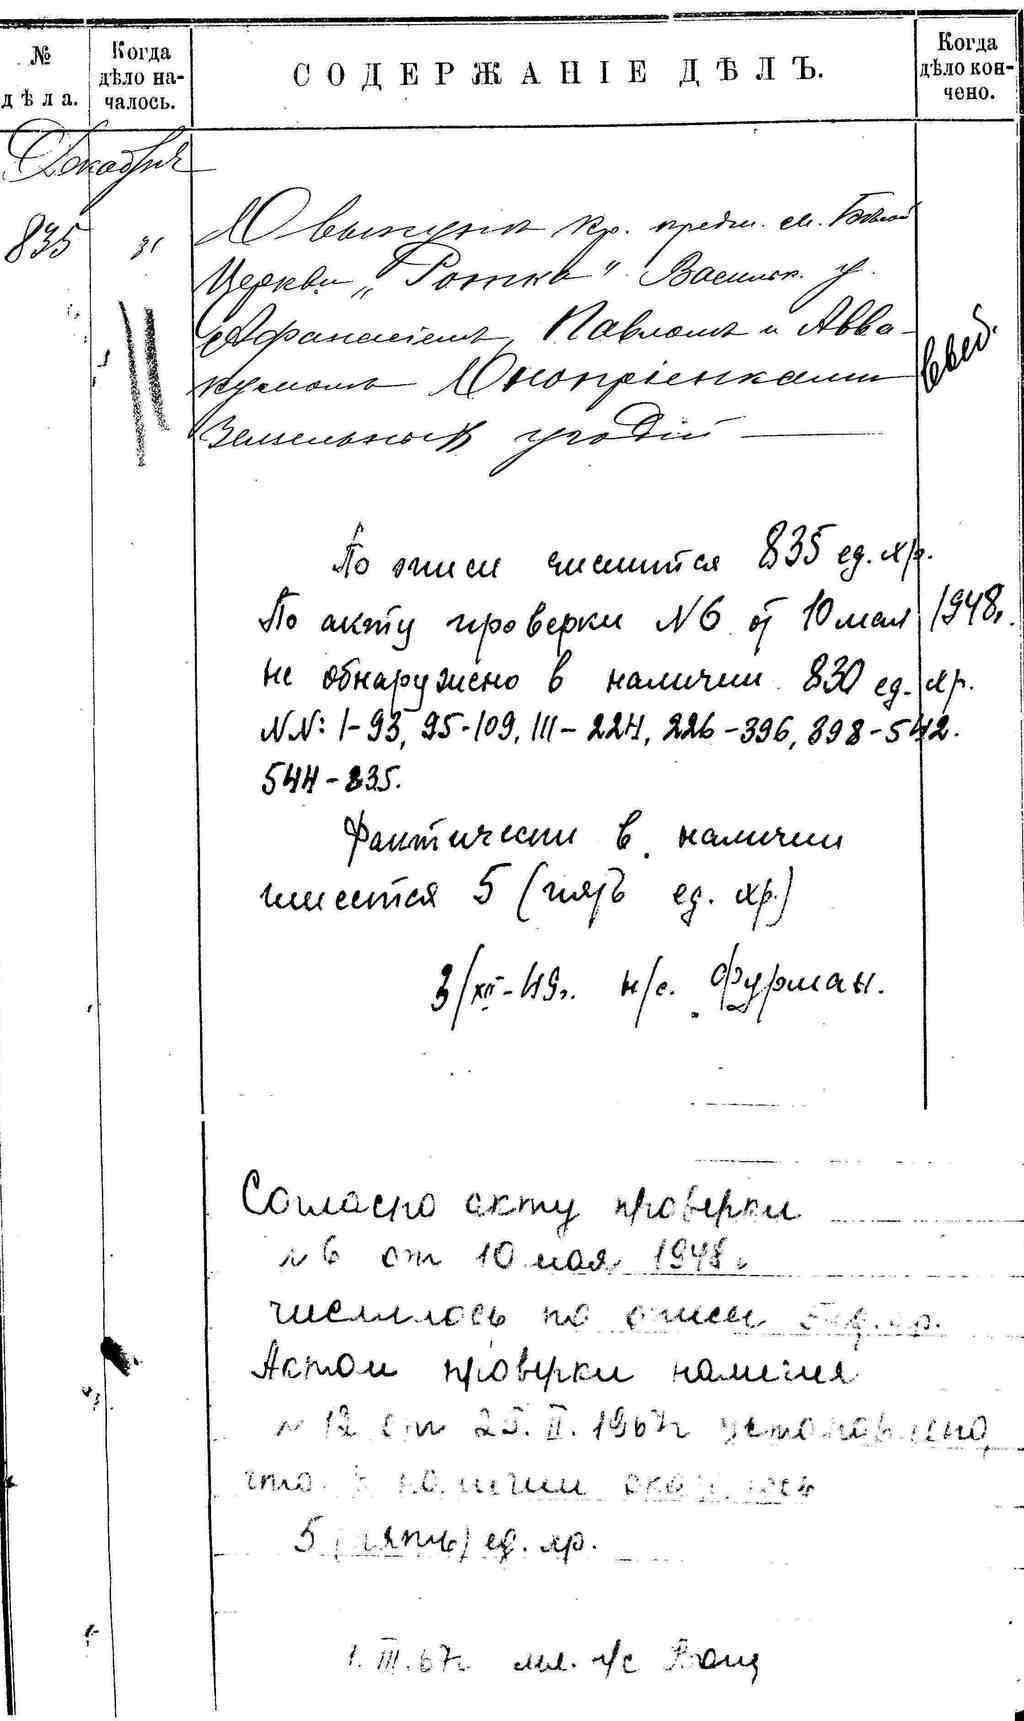 № дѣла.
Когда дѣло на-чалось.
СОДЕРЖАНІЕ ДѢЛЪ.
Когда дѣло кон-чено.
Декабря
835 31 О выкупѣ кр. предм. м. Бѣлой
Церкви „Ротка" Васильк. у.
Афанасіемъ, Павломъ и Авва-
кумомъ Оноприенками
Земельныхъ угодій
По описи числится 835 ед. хр.
По акту проверки N6 от 10 мая 1948г.
не обнаружено в наличии 830 ед. хр.
NN: 1-93, 95-109, 111-224, 226-396, 398-542.
544-835.
Фактически в наличии
имеется 5 (пять ед. хр.)
3/XII-49г. н/с. Фурман.
Согласно акту проверки
N 6 от 10 мая 1948г.
числилось по описи 5 ед. хр.
Актом проверки наличия
N 12 от 25. II. 1967г установлено,
что в наличии оказалось
5 (пять) ед. хр.
1. III. 67г мл. н/с